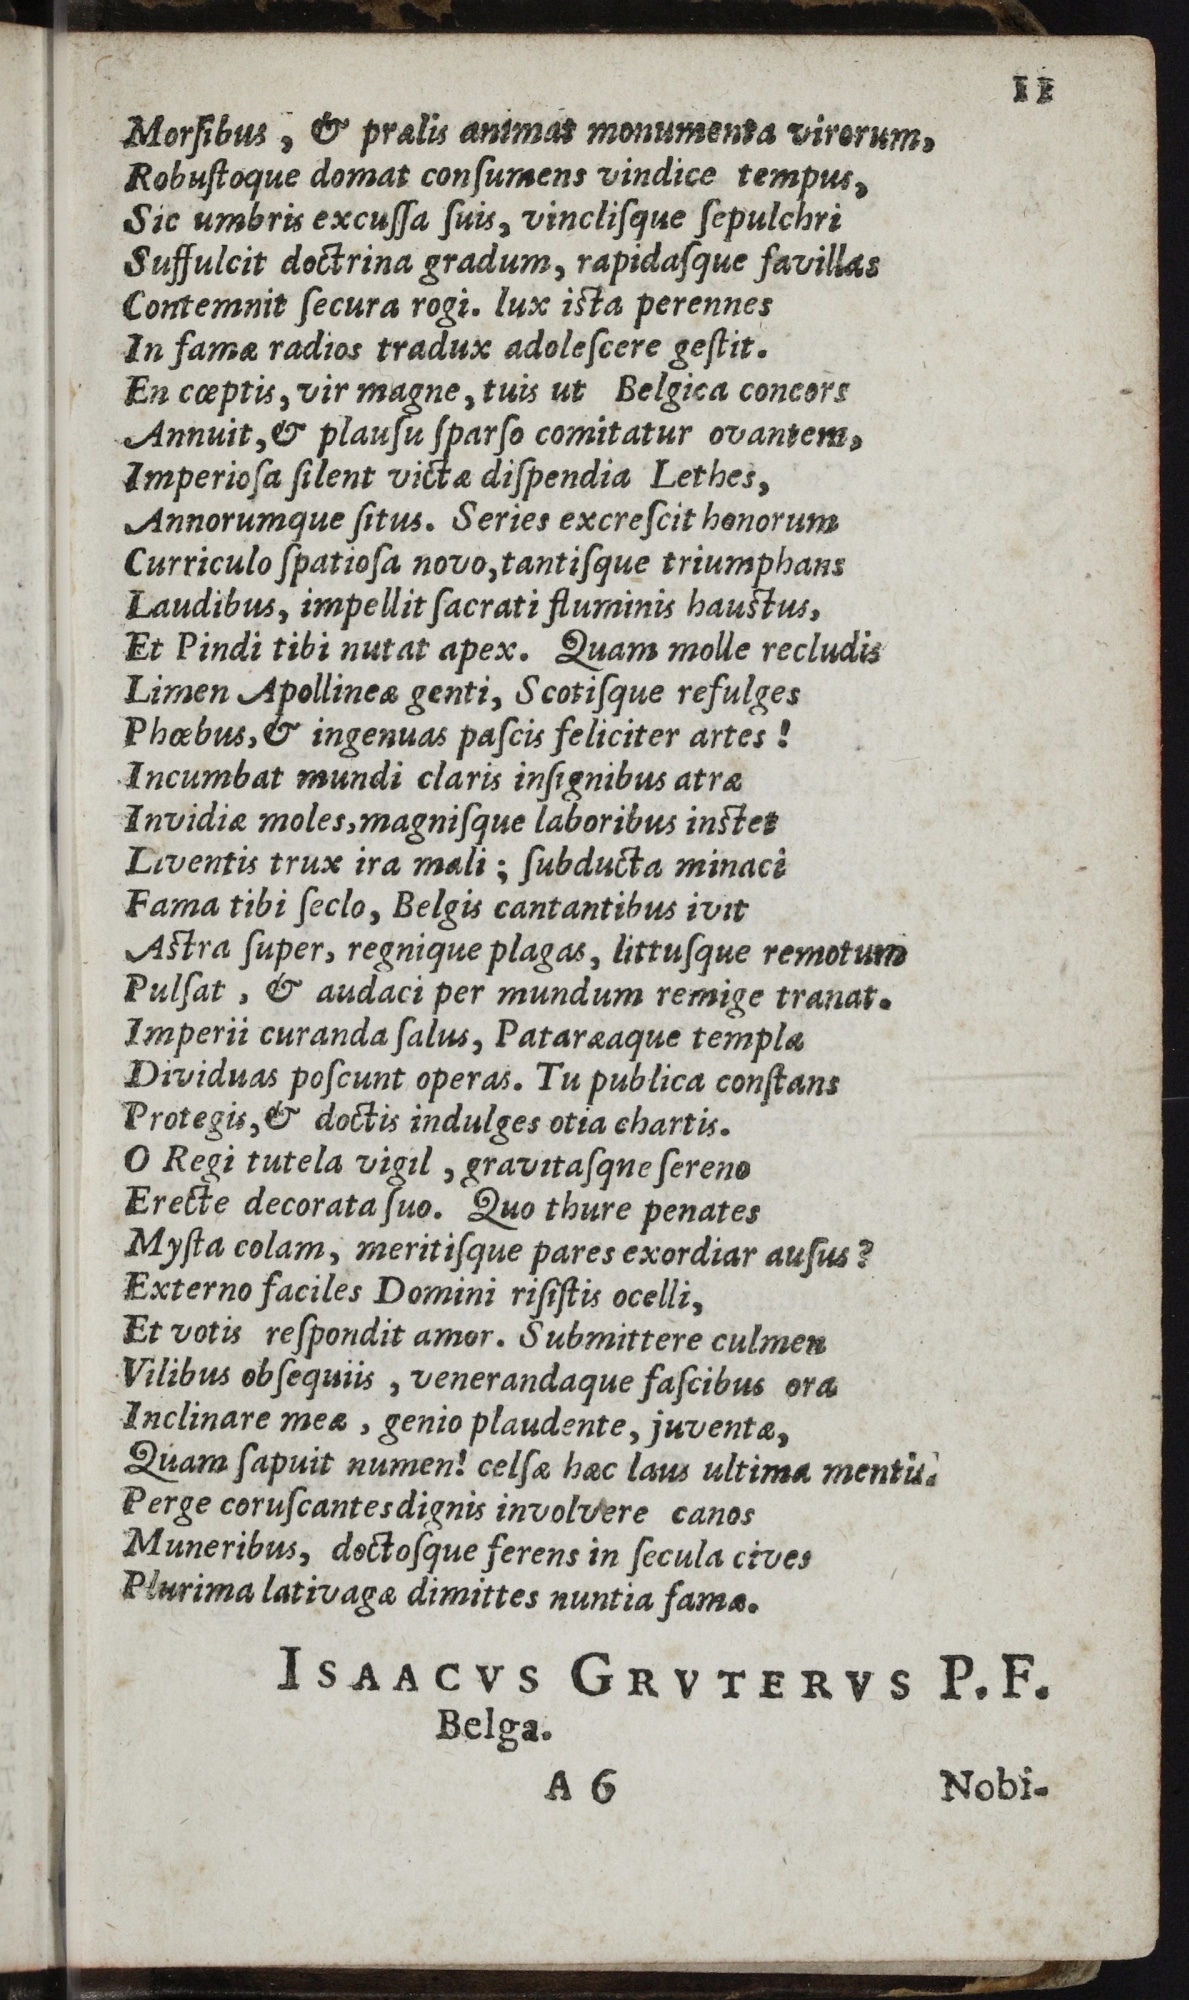 11
Morſibus, & prælis animat monumenta virorum,
Robuſtoque domat conſumens vindice tempus,
Sic umbris excuſſa ſuis, vincliſque ſepulchri
Suffulcit doctrina gradum, rapidaſque favillas
Contemnit ſecura rogi. lux iſta perennes
In famæ radios tradux adoleſcere geſtit.
En cœptis, vir magne, tuis ut Belgica concors
Annuit, & plauſu ſparſo comitatur ovantem,
Imperioſa ſilent victæ diſpendia Lethes,
Annorumque ſitus. Series excreſcit honorum
Curriculo ſpatioſa novo, tantiſque triumphans
Laudibus, impellit ſacrati fluminis hauſtus,
Et Pindi tibi nutat apex. Quam molle recludis
Limen Apollineæ genti, Scotiſque refulges
Phœbus, & ingenuas paſcis feliciter artes!
Incumbat mundi claris inſignibus atræ
Invidiæ moles, magniſque laboribus inſtet
Liventis trux ira mali; ſubducta minaci
Fama tibi ſeclo, Belgis cantantibus ivit
Aſtra ſuper, regnique plagas, littuſque remotum
Pulſat, & audaci per mundum remige tranat.
Imperii curanda ſalus, Pataræaque templa
Dividuas poſcunt operas. Tu publica conſtans
Protegis, & doctis indulges otia chartis.
O Regi tutela vigil, gravitaſqne ſereno
Erecte decorata ſuo. Quo thure penates
Myſta colam, meritiſque pares exordiar auſus?
Externo faciles Domini riſiſtis ocelli,
Et votis reſpondit amor. Submittere culmen
Vilibus obſequiis, venerandaque faſcibus ora
Inclinare meæ, genio plaudente, juventæ,
Quam ſapuit numen! celſæ hæc laus ultima mentis.
Perge coruſcantes dignis involvere canos
Muneribus, doctoſque ferens in ſecula cives
Plurima lativagæ dimittes nuntia famæ.
ISAACVS GRVTERVS P. F.
Belga.
A 6
Nobi-